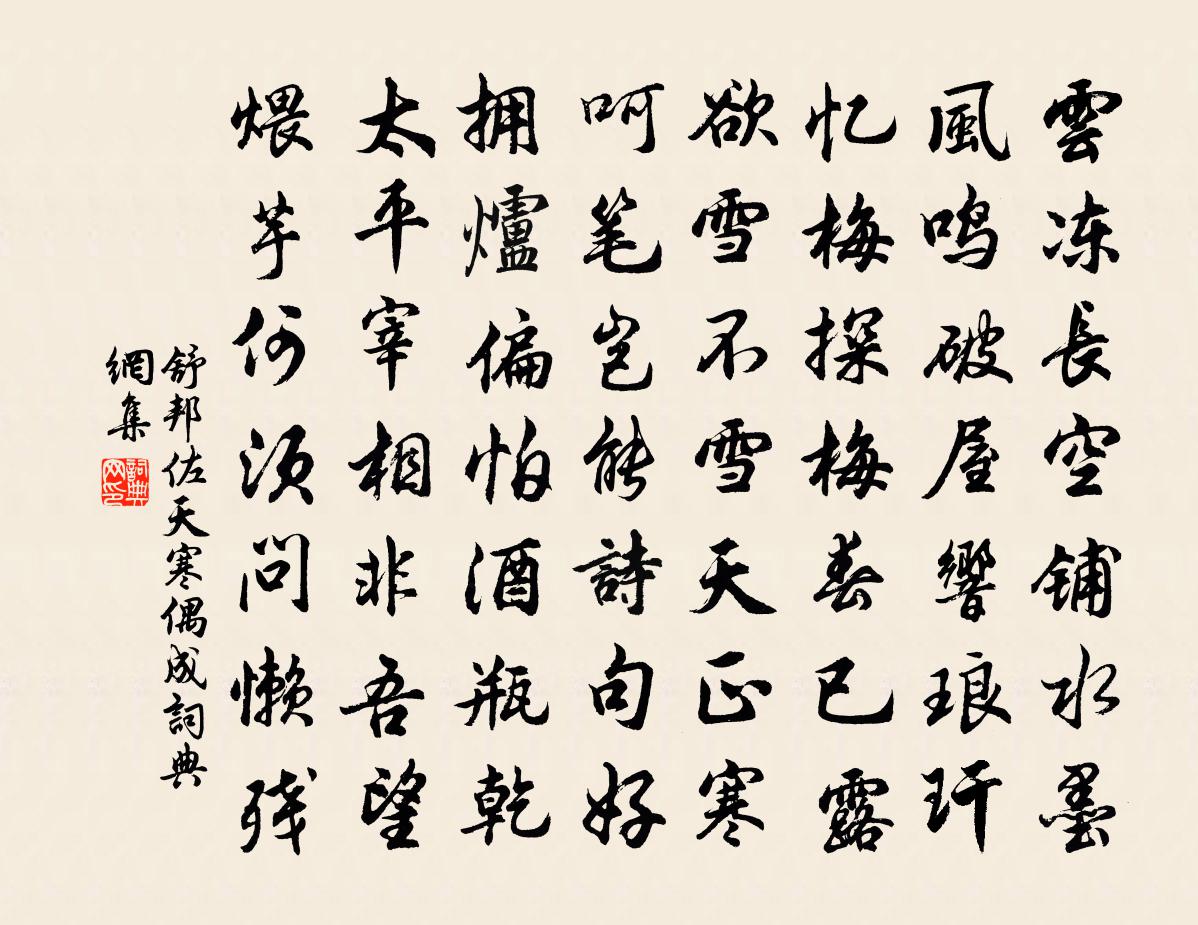 雲冻長空铺水墨
風鸣破屋響琅玕
忆梅探梅春已露
欲雪不雪天正寒
呵笔岂能詩句好
拥爐偏怕酒瓶乾
太平宰相非吾望
煨芋何须问懒残
舒邦佐天寒偶成詞典
網集
詞典
网印